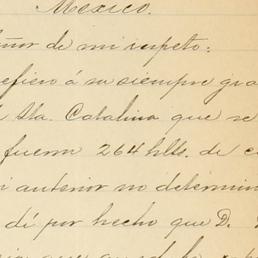 Mexico.
Señor de mi respeto:
refiero á su siempre gra
Sta. Catalina que se
fueron 264 hlts. de c
mi anterior no determin
dí por hecho que D.